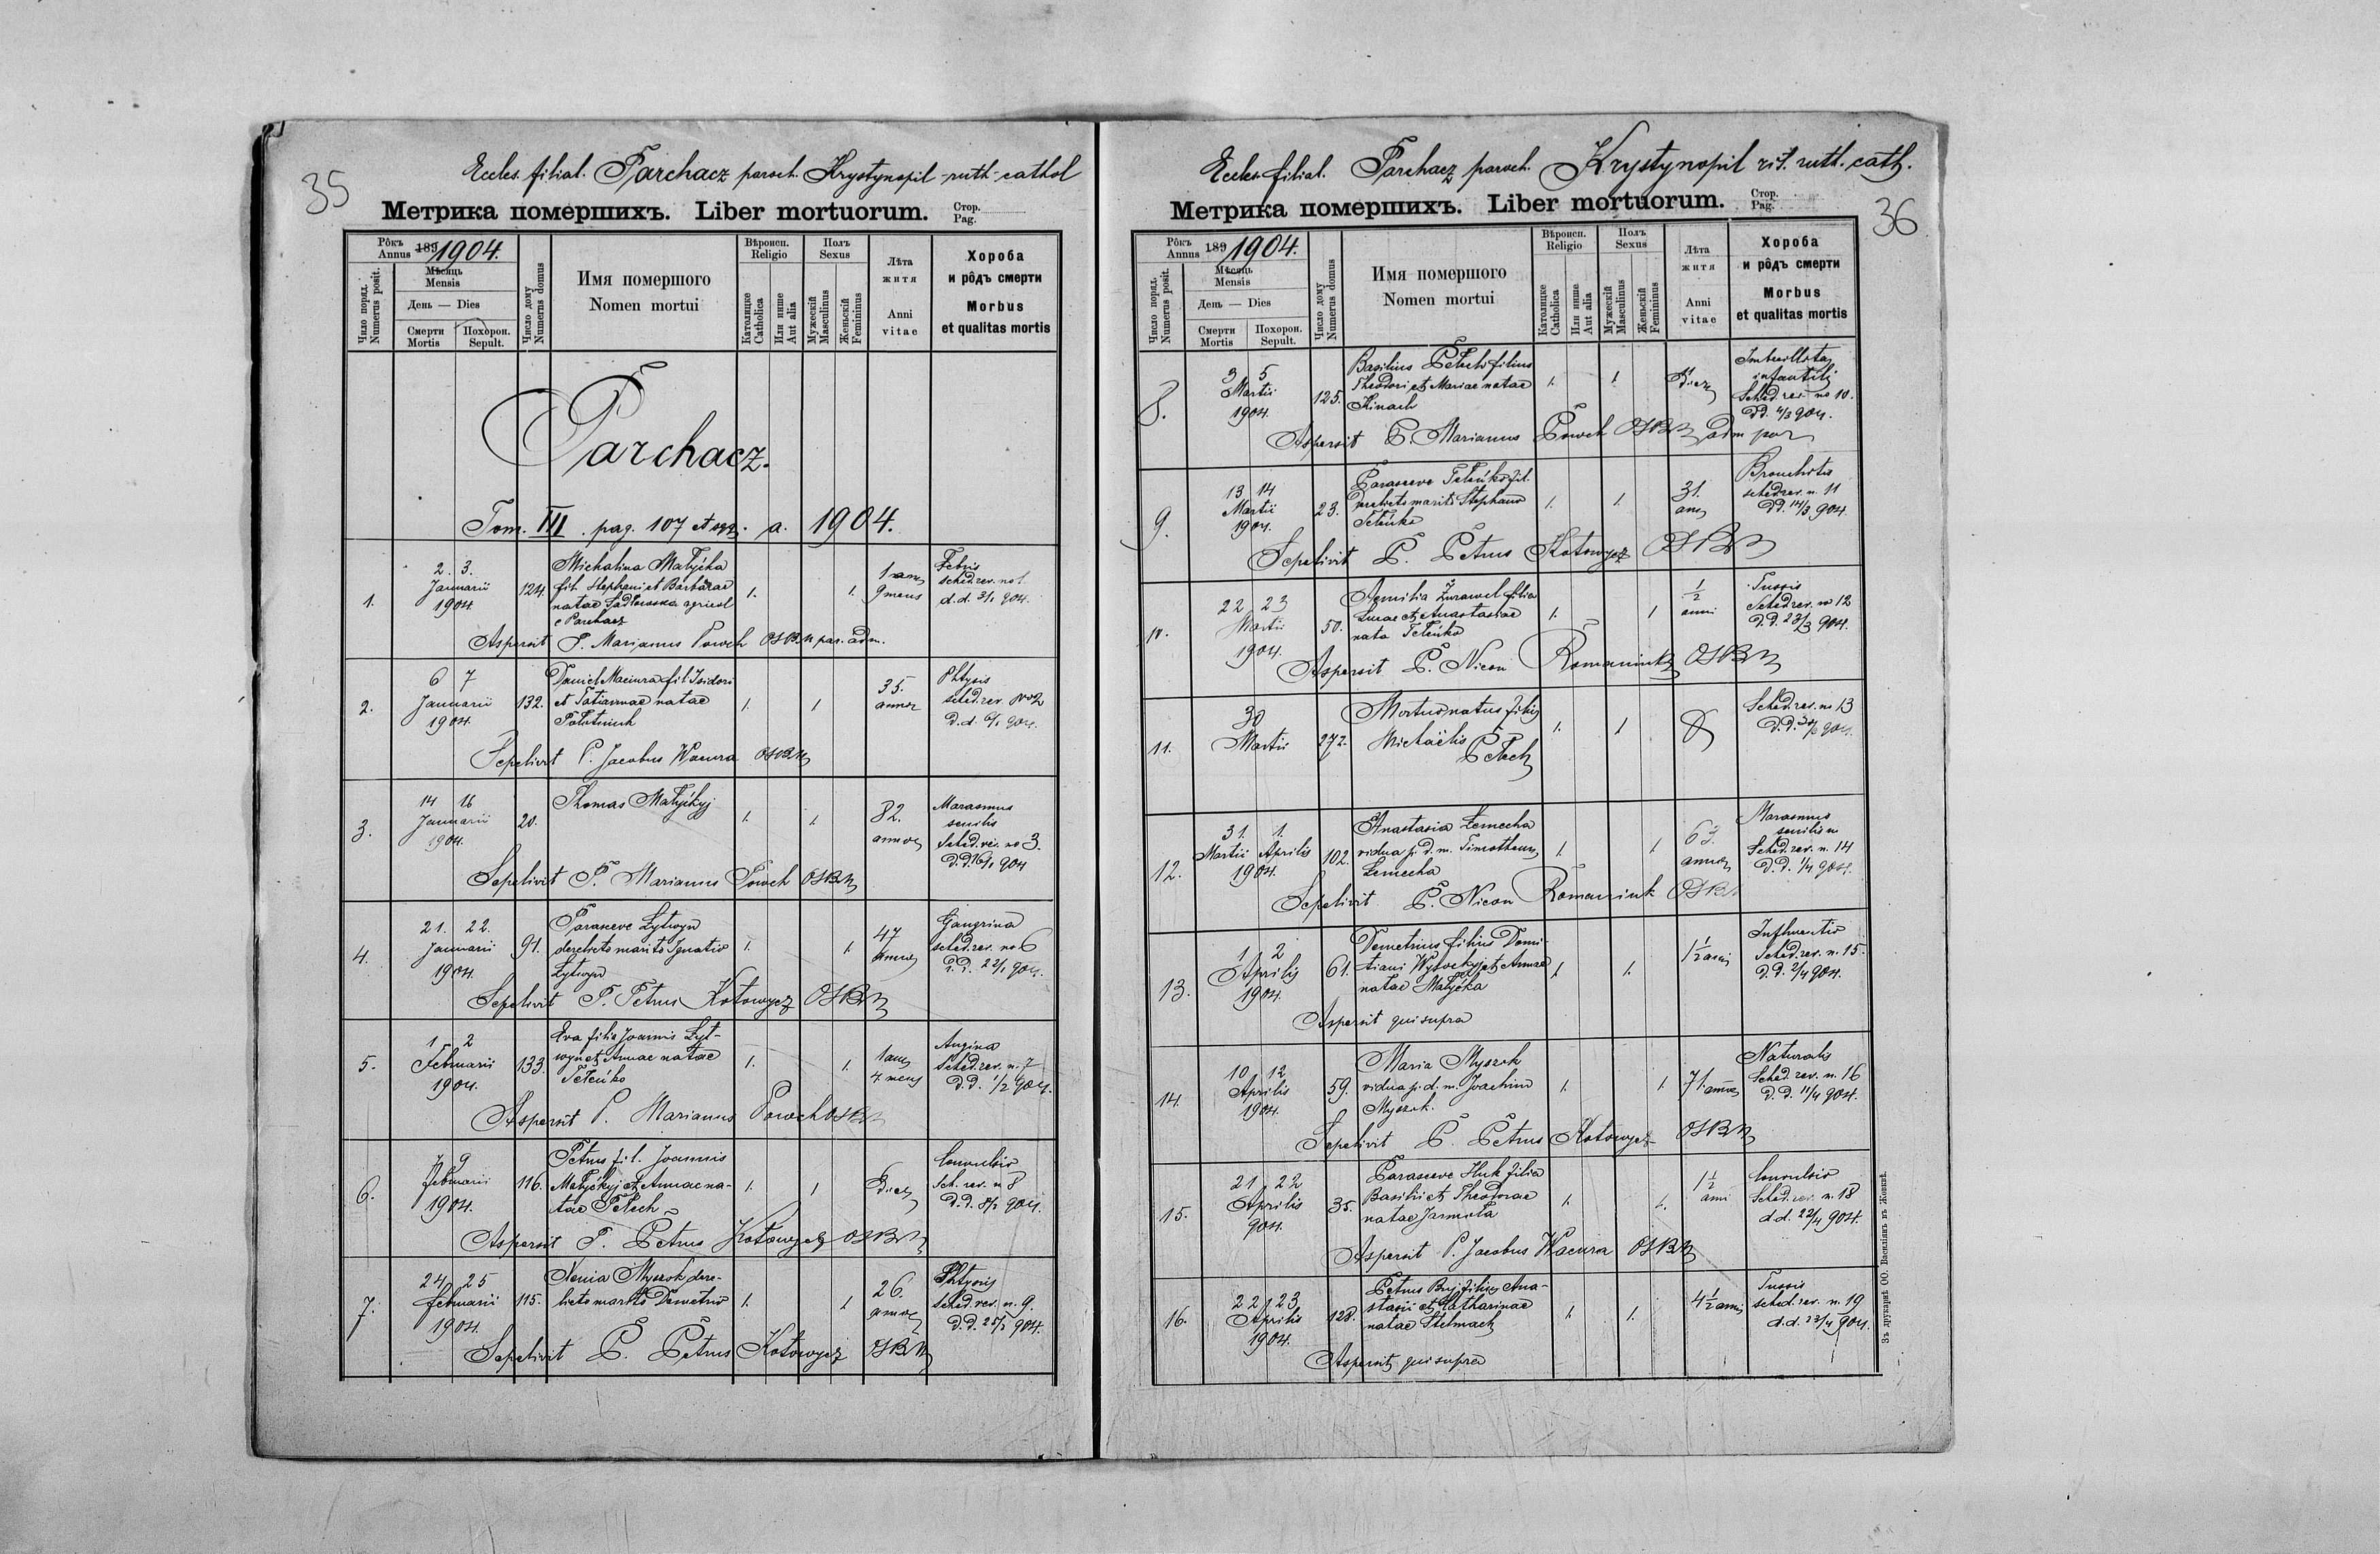 35
Eccles. filial. Parchacz paroch. Krystynopil - ruth - cathol
Метрика помершихъ. Liber mortuorum. Стор. Pag.
Рôкъ Annus 189 1904.
Мѣсяць Mensis
День — Dies
Смерти Mortis
Похорон. Sepult.
Число поряд. Numerus posit.
Число дому Numerus domus
Имя помершого
Nomen mortui
Вѣроисп. Religio
Католицке Catholica
Или инше Aut alia
Полъ Sexus
Мужескій Masculinus
Женьскій Femininus
Лѣта житя
Anni vitae
Хороба
и рôдъ смерти
Morbus
et qualitas mortis
Parchacz.
Tom. III. pag. 107 et sqq. a. 1904.
1.
2. 3.
Januarii
1904
124.
Michalina Małyćka
fil. Stephani et Barbarae
natae agricol
e Parchacz
1.
1.
1 ann
9 mens
Febris
sched. rev. no 1.
d. d. 3/1 904.
Aspersit P. Marianus Powch OSBM par. adm.
2.
6 7
Januarii
1904
132.
Daniel Maciura fil Isidori
et Tatiannae natae
1.
1
35.
annor
Phtysis
sched. rev. No 2
D. d. 6/1 904.
Sepelivit P. Jacobus Wacura OSBM
3.
14 16
Januarii
1904.
20.
Thomas Małyćkyj
1.
1.
82.
annor
Marasmus
senilis
Sched. rev. no 3.
D. D. 16/1 904
Sepelivit P. Marianus Powch OSBM
4.
21. 22.
Januarii
1904.
91.
Paraseve Łytwyn
derelicto marito Ignatio
Łytwyn
1.
1.
47
annor
Gangrina
sched. rev. no 6
D. D. 22/1 904.
Sepelivit P. Petrus Kotowycz OSBM
5.
1 2
Februarii
1904.
133.
Eva filia Joannis Łyt-
wyn et Annae natae
Teteńko
1.
1.
1 ann
4. mens
Angina
Sched. rev. n. 7
D. D. 1/2 904.
Aspersit P. Marianus Powch OSBM
6.
7 9
Februarii
1904.
116.
Petrus fil. Joannis
Małyćkyj et Annae na-
tae Pełech
1.
1
8 dies
Convulsio
Sch. rev. n 8
D. D. 8/2 904.
Aspersit P. Petrus Kotowycz OSBM
7.
24 25
Februarii
1904.
115.
Xenia Myszok dere-
licto marito Demetrio
1.
1
26.
annor
Phtysis
Sched. rev. n. 9.
D. D. 25/2 904.
Sepelivit P. Petrus Kotowycz OSBM
36
Eccles. filial. Parchacz paroch. Krystynopil rit. ruth. cath.
Метрика помершихъ. Liber mortuorum. Стор. Pag.
Рôкъ Annus 189 1904.
Мѣсяць Mensis
День — Dies
Смерти Mortis
Похорон. Sepult.
Число поряд. Numerus posit.
Число дому Numerus domus
Имя помершого
Nomen mortui
Вѣроисп. Religio
Католицке Catholica
Или инше Aut alia
Полъ Sexus
Мужескій Masculinus
Женьскій Femininus
Лѣта житя
Anni vitae
Хороба
и рôдъ смерти
Morbus
et qualitas mortis
8.
3 5
Martii
1904.
125.
Basilius Pełech filius
Theodori et Mariae natae
Hinach
1.
1.
Imbecillitas
infantilis
Sched. rev. no 10.
DD. 4/3 904.
Aspersit P. Marianus Powch OSBM adm par
9.
13 14
Martii
1904.
23.
Paraseve Teteńko fil.
derelicto marito Stephano
Teteńko
1.
1.
31.
ann
Bronchitis
sched. rev. n. 11
DD. 14/3 904.
Sepelivit P. Petrus Kotowycz OSBM
10.
22 23
Martii
1904.
50.
Aemilia Żurawel filia
Lucae et Anastasiae
nata Teteńko
1.
1
1/2
anni
Tussis
Sched. rev. no 12
D. D. 23/3 904.
Aspersit P. Nicon Romaniuk OSBM
11.
30
Martii
272.
Mortuo natus filius
Michaëlis
Pełech
1.
1
Sched. rev. no 13
D. D. 904.
12.
31. 1.
Martii Aprilis
1904.
102.
Anastasia Łemecha
vidua p. d. m. Timotheum
Łemecha
1.
1
63.
annor
Marasmus
senilis
Sched. rev. n. 14
D. D. 1/4 904.
Sepelivit P. Nicon Romaniuk OSBM
13.
1 2
Aprilis
1904.
61.
Demetrius filius Domi-
tiani et Annae
natae Małyćka
1.
1.
1 1/2 anni
Sched. rev. n. 15.
D. D. 2/4 904.
Aspersit qui supra
14.
10 12
Aprilis
1904.
59.
Maria Myszok
vidua p. d. m. Joachim
Myszok.
1.
1.
71. annor
Naturalis
Sched. rev. n. 16
D. D. 11/4 904.
Sepelivit P. Petrus Kotowycz OSBM
15.
21. 22
Aprilis
904.
35.
Paraseve Huk filia
Basilii et Theodorae
natae Jarmoła
1.
1.
1 1/2
anni
Convulsio
Sched. rev. n. 18
d. d. 22/4 904.
Aspersit P. Jacobus Wacura OSBM
16.
22 23
Aprilis
1904.
128.
Petrus filius Ana-
stasii et Catharinae
natae Stelmach
1.
1.
4 1/2 anni
Tussis
sched. rev. n. 19
d. d. 23/4 904.
Aspersit qui supra
Зъ друкарнѣ ОО. Василіянъ въ Жовквѣ.